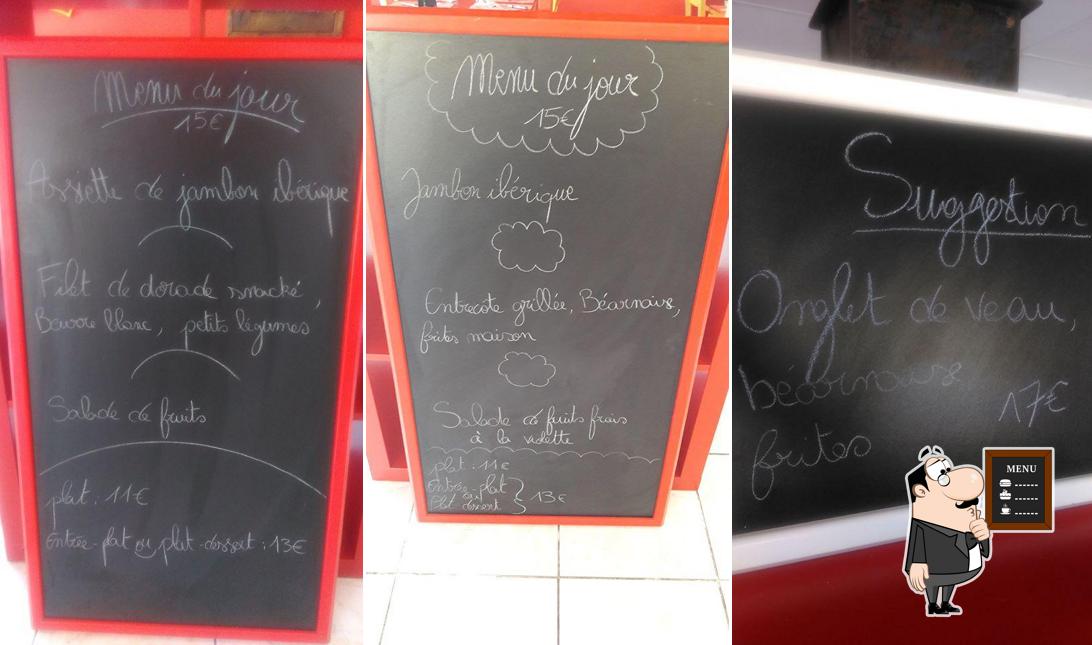 Menu du jour
15€
Assiette de jambon ibérique
Filet de dorade snacké,
Beurre blanc, petits légumes
Salade de fruits
plat : 11€
Entrée-plat ou plat-dessert : 13€
Menu du jour
15€
Jambon ibérique
Entrecote grillée, Béarnaise,
frites maison
Salade de fruits frais
à la violette
plat : 11€
Entrée-plat
ou
Plat dessert
13€
Suggestion
Onglet de veau,
béarnaise
17€
frites
MENU